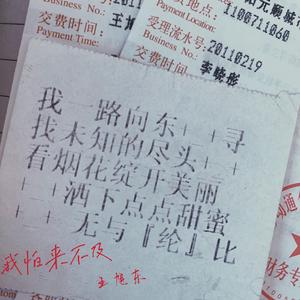 阳元顺城
缴费地点:
Payment Location:
1100711060
交费时间:
Payment Time:
受理流水号: 20110219
Business No.:
李晓彬
交费时间
Payment Time:
Business No.:
我一路向东++寻
找未知的尽头++
看烟花绽开美丽
++洒下点点甜蜜
++无与『纶』比
我怕来不及
王旭东